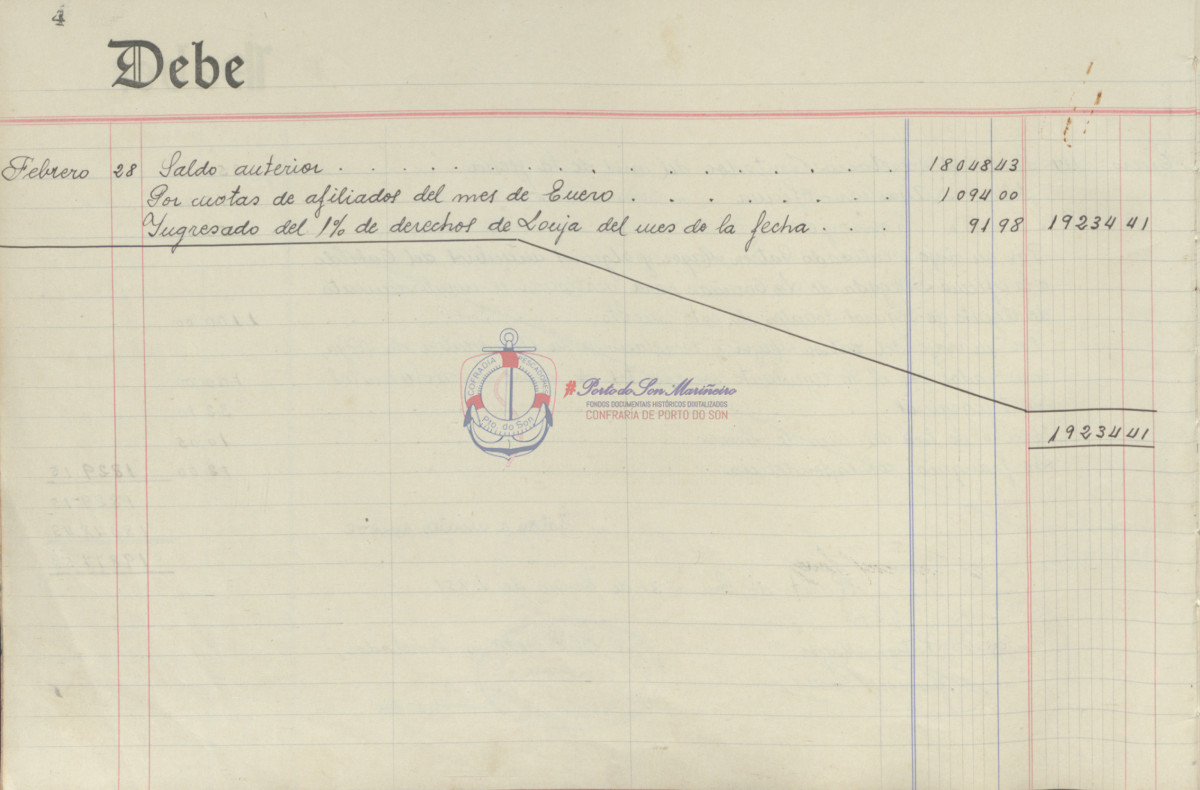 4
Debe
Febrero 28 Saldo anterior . . . . . . . . . . . . . . 18048 43
Por cuotas de afiliados del mes de Enero . . . . . . . 1094 00
Ingresado del 1% de derechos de Lonja del mes de la fecha . . . 91 98 19234 41
COFRADIA PESCADORES
Pto. do Son
#Porto do Son Mariñeiro
FONDOS DOCUMENTAIS HISTÓRICOS DIXITALIZADOS
CONFRARIA DE PORTO DO SON
19234 41